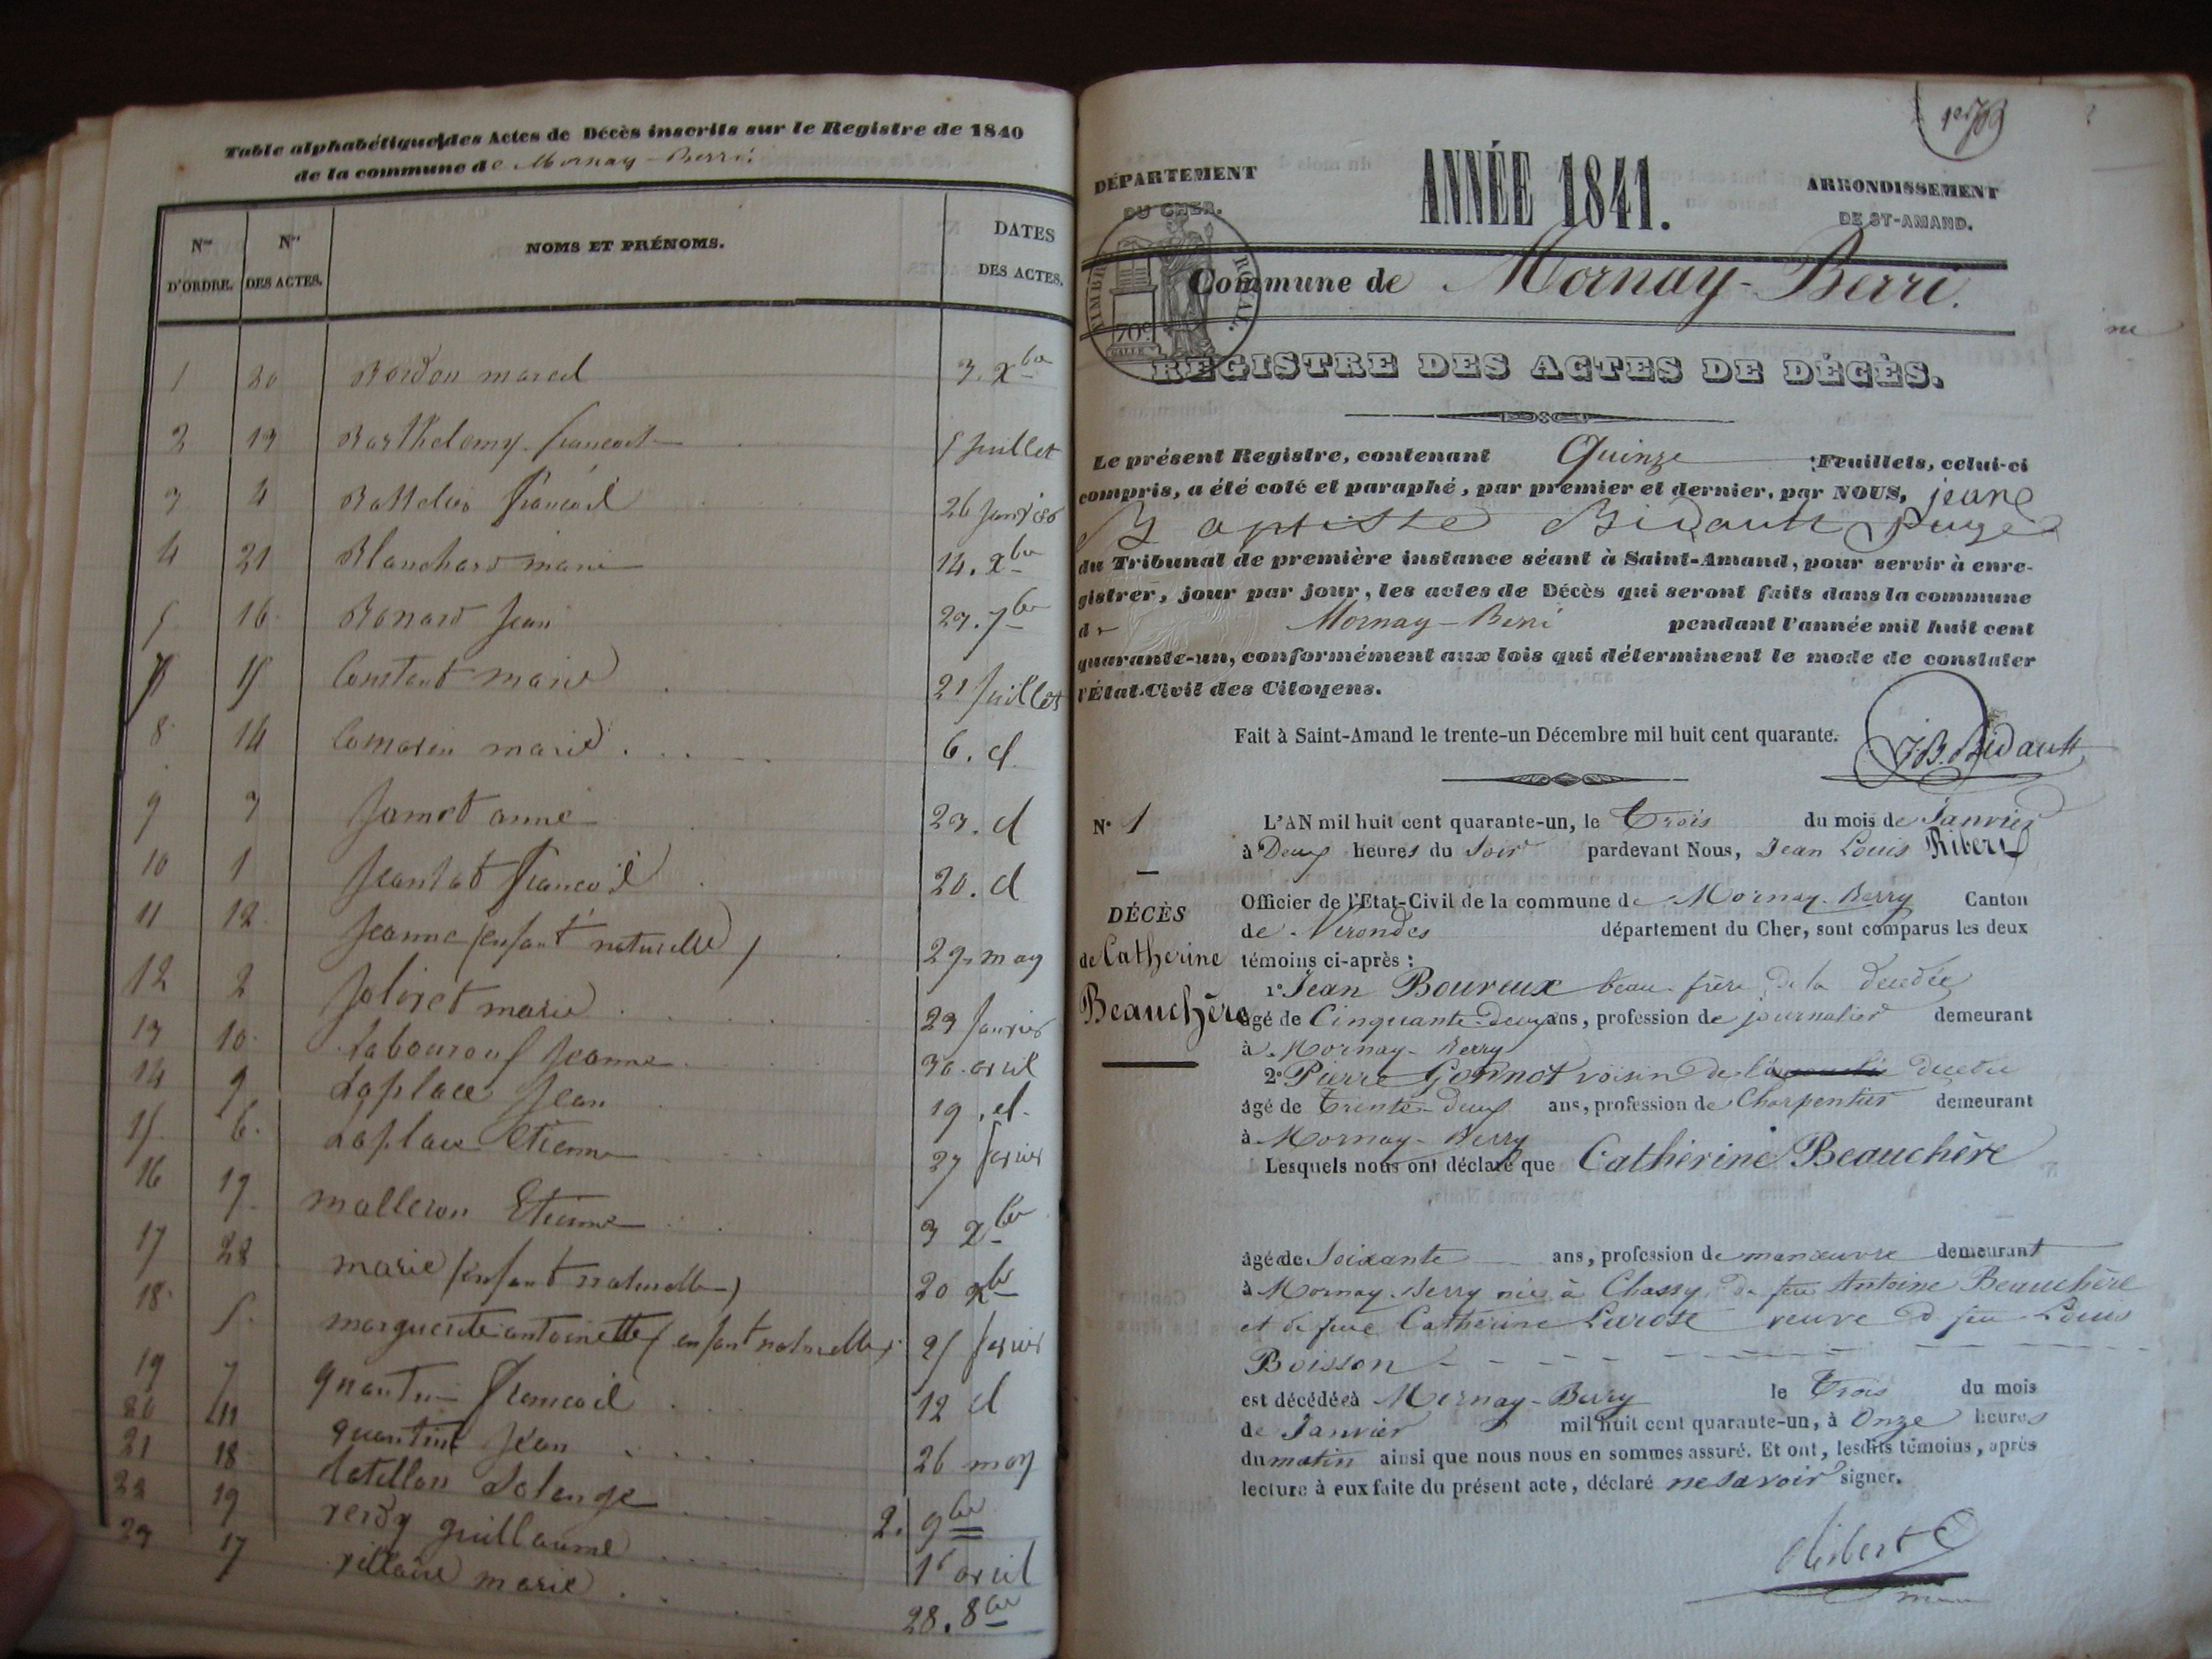 Table alphabétique des Actes de Décès inscrits sur le Registre de 1840
de la commune de Mornay-Berri
Nos D'ORDRE. Nos DES ACTES. NOMS ET PRÉNOMS. DATES DES ACTES.
1 20 Bordou marcel 3. Xbre
2 13 Barthelemy francois 5 Juillet
3 4 Battelier francois 26 Janvier
4 21 Blanchard marie 14. Xbre
5 16 Bonard Jean 23. 7bre
7 15 Constant marie 21 Juillet
8 14 Comarin marie 6. d
9 3 Jamet anne 23. d
10 1 francois 20. d
11 12 Jeanne (enfant naturelle) 29 may
12 2 Joliret marie 23 Janvier
13 10 Labourouf Jeanne 30 avril
14 9 Laplace Jean 19. d
15 6 Laplace Etienne 27 fevrier
16 19 malleron Etienne 3 Xbre
17 22 marie (enfant naturelle) 20 Xbre
18 5 marguerite antoinette (enfant naturelle) 25 fevrier
19 7 quantin francois 12 d
20 11 quantin Jean 26 may
21 18 Solange 2. 9bre
22 19 verdy guillaume 16 avril
23 17 villaire marie 28. 8bre
DÉPARTEMENT DU CHER. ANNÉE 1841. ARRONDISSEMENT DE ST-AMAND.
TIMBRE ROYAL.
70c
Commune de Mornay-Berri.
REGISTRE DES ACTES DE DÉCÈS.
Le présent Registre, contenant Quinze Feuillets, celui-ci
compris, a été coté et paraphé, par premier et dernier, par NOUS, jean
Baptiste Bidault juge
du Tribunal de première instance séant à Saint-Amand, pour servir à enre-
gistrer, jour par jour, les actes de Décès qui seront faits dans la commune
de Mornay-Berri pendant l'année mil huit cent
quarante-un, conformément aux lois qui déterminent le mode de constater
l'État-Civil des Citoyens.
Fait à Saint-Amand le trente-un Décembre mil huit cent quarante.
JB. Bidault
N° 1 L'AN mil huit cent quarante-un, le Trois du mois de Janvier
à Deux heures du Soir pardevant Nous, Jean Louis Ribert
Officier de l'Etat-Civil de la commune de Mornay-Berry Canton
DÉCÈS
de Nerondes département du Cher, sont comparus les deux
de Catherine
témoins ci-après :
1° Jean Boureux beau-frère de la decedée
Beauchère
âgé de Cinquante-deux ans, profession de journalier demeurant
à Mornay-Berry
2° Pierre Gonnot voisin de la decedée
âgé de Trente-deux ans, profession de Charpentier demeurant
à Mornay-Berry
Lesquels nous ont déclaré que Catherine Beauchère
âgée de Soixante ans, profession de manœuvre demeurant
à Mornay-Berry née à Chassy, de feu Antoine Beauchère
et de feue Catherine Larose veuve de feu Louis
Boisson
est décédée à Mornay-Berry le Trois du mois
de Janvier mil huit cent quarante-un, à Onze heures
du matin ainsi que nous nous en sommes assuré. Et ont, lesdits témoins, après
lecture à eux faite du présent acte, déclaré ne savoir signer.
Ribert